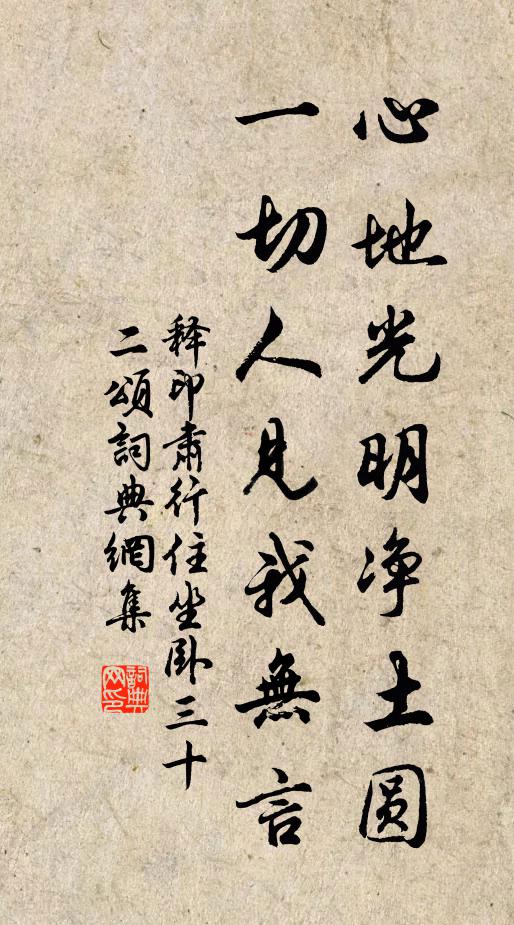 心地光明净土圆
一切人见我無言
释印肃行住坐卧三十
二頌詞典網集
詞典网印